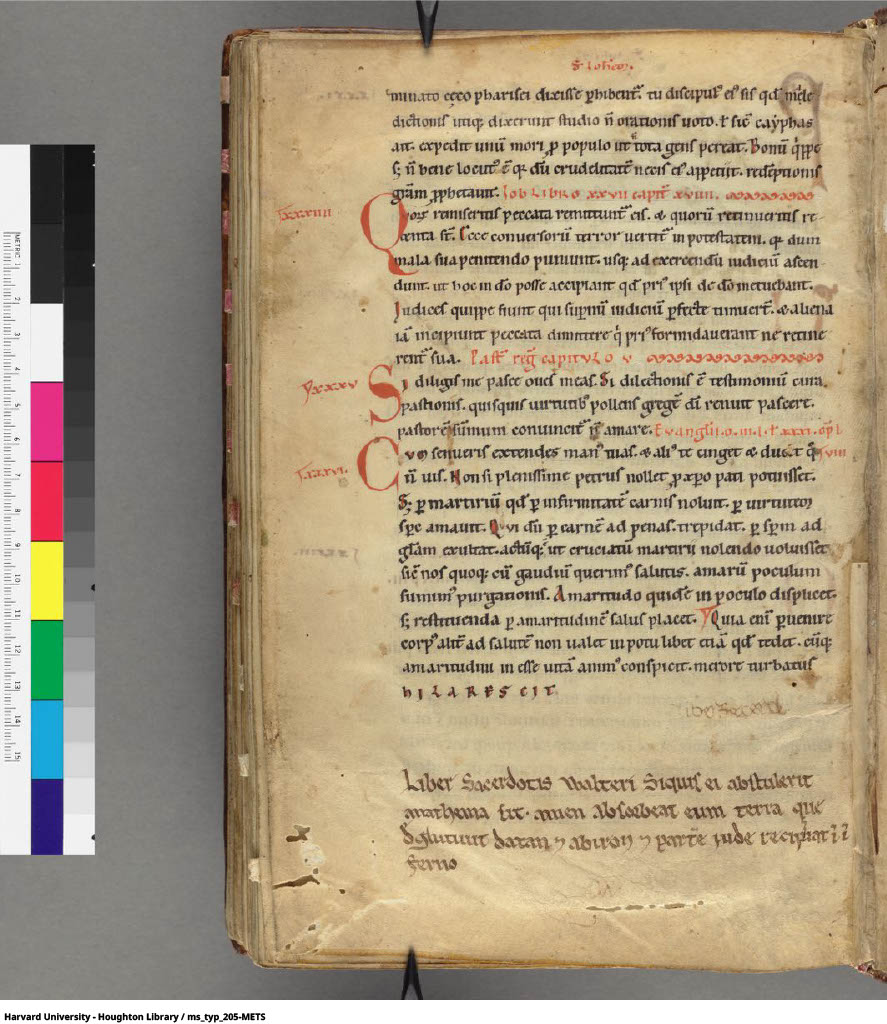 S. Iohem.
minato ceco pharisei dixisse ꝑhibent᷑. tu discipul᷒ ei᷒ sis qd̄ male
dictionis utiq; dixerunt studio n̄ orationis uoto. ł sic̄ cayphas
ait. expedit unū mori ꝓ populo ut tota gens pereat. Bonū q̇ppe
s; n̄ bene locut᷒ ē q; dū crudelitatē necis ei᷒ appetiit. redēptionis
gr̄am ꝓphetauit. Iob libro xxvii capit̄ xviii.
lxxxiiii
Quorꝫ remiseritis peccata remittunt᷑ eis. & quorū retinueritis re
tenta st̄. Ecce conuersorū terror uertit᷑ in potestatem. q; dum
mala sua penitendo puniunt. usq; ad exercendū iudiciū ascen
dunt. ut hoc in dō posse accipiant qd̄ pri᷒ ipsi de dō metuebant.
Iudices quippe fiunt qui sup̄nū iudiciū ꝑfecte timuer̄t. & aliena
iā incipiunt peccata dimittere q̇ pri᷒ formidauerant ne retine
rent᷑ sua. Past̄ reḡ capitulo v
lxxxv
Si diligis me pasce oues meas. Si dilectionis ē testimoniū cura
pastionis. quisquis uirtutib᷒ pollens gregē dī renuit pascere.
pastorē sūmum conuincit᷑ n̄ amare. Evangl̄i.o.m.l.ł xxxi. cp̄l
xviii
lxxxvi.
Cum senueris extendes man᷒ tuas. & ali᷒ te cinget & ducet q̊
tū uis. Non si plenissime petrus nollet ꝓ xp̄o pati potuisset.
S; ꝑ martiriū qd̄ ꝑ infirmitatē carnis noluit. ꝑ uirtutem
sp̄c amauit. Qui dū ꝑ carnē ad penas trepidat. ꝑ sp̄m ad
gl̄am exultat. actūq; ut cruciatū martirii nolendo uoluisset
sic̄ nos quoq; cū gaudiū querim᷒ salutis. amarū poculum
sumim᷒ purgationis. Amaritudo quidē in poculo displicet.
s; restituenda ꝑ amaritudinē salus placet. Quia eni᷑ ꝑuenire
corp᷒ alit᷑ ad salutē non ualet in potu libet etiā qd̄ tedet. cūq;
amaritudini in esse uitā anim᷒ conspicit. merore turbatus
hILARESCIT
Liber Sacerdotis Walteri Siquis ei abstulerit
anathema sit. amen absorbeat eum terra que
deglutiuit datan ⁊ abiron ⁊ partē iude recipiat ī ī
ferno
METRIC 1 2 3 4 5 6 7 8 9 10 11 12 13 14 15
Harvard University - Houghton Library / ms_typ_205-METS